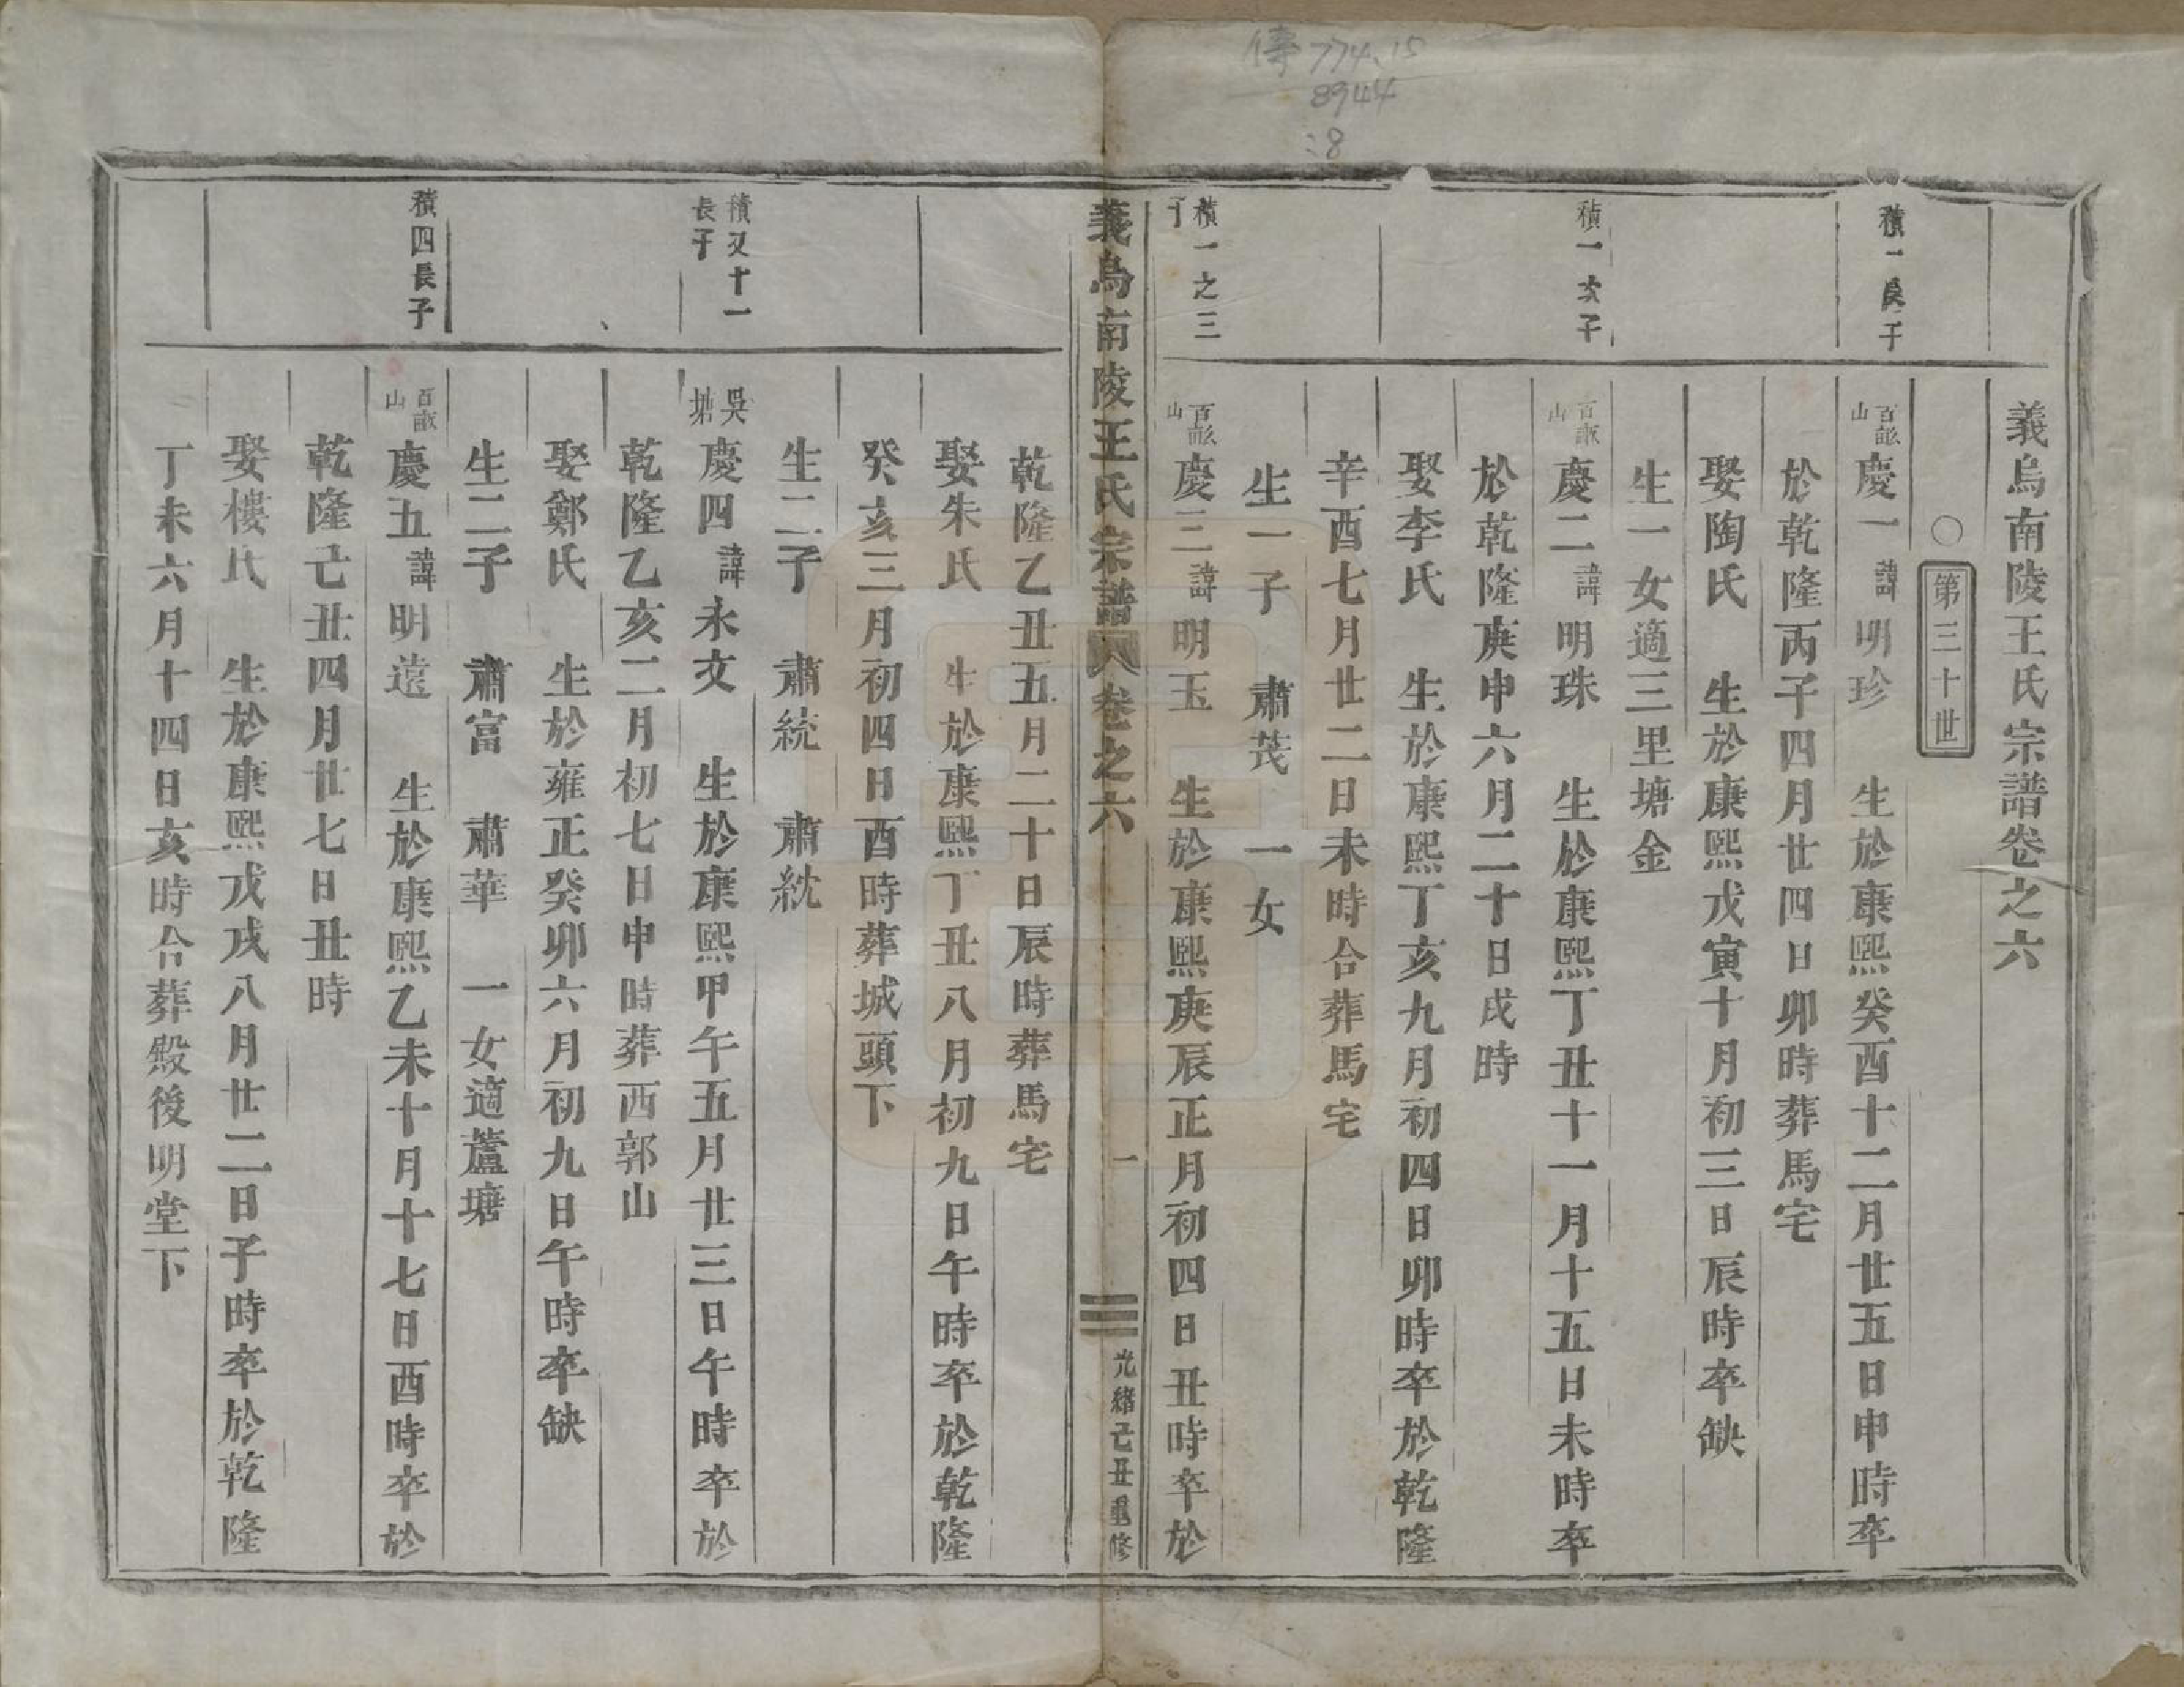 傳 774.15
8944
:8
義烏南陵王氏宗譜卷之六
〇第三十世
積一長子
百畝山
慶一諱明珍 生於康熙癸酉十二月廿五日申時卒
於乾隆丙子四月廿四日卯時葬馬宅
娶陶氏 生於康熙戊寅十月初三日辰時卒缺
生一女適三里塘金
積一次子
百畝山
慶二諱明珠 生於康熙丁丑十一月十五日未時卒
於乾隆庚申六月二十日戌時
娶李氏 生於康熙丁亥九月初四日卯時卒於乾隆
辛酉七月廿二日未時合葬馬宅
生一子 肅茂 一女
積一之三子
百畝山
慶三諱明玉 生於康熙庚辰正月初四日丑時卒於
義烏南陵王氏宗譜 卷之六 一 光緒己丑重修
乾隆乙丑五月二十日辰時葬馬宅
娶朱氏 生於康熙丁丑八月初九日午時卒於乾隆
癸亥三月初四日酉時葬城頭下
生二子 肅統 肅紞
積又十一長子
吳塘
慶四諱永文 生於康熙甲午五月廿三日午時卒於
乾隆乙亥二月初七日申時葬西郭山
娶鄭氏 生於雍正癸卯六月初九日午時卒缺
生二子 肅富 肅華 一女適蘆塘
積四長子
百畝山
慶五諱明遠 生於康熙乙未十月十七日酉時卒於
乾隆己丑四月廿七日丑時
娶樓氏 生於康熙戊戌八月廿二日子時卒於乾隆
丁未六月十四日亥時合葬殿後明堂下